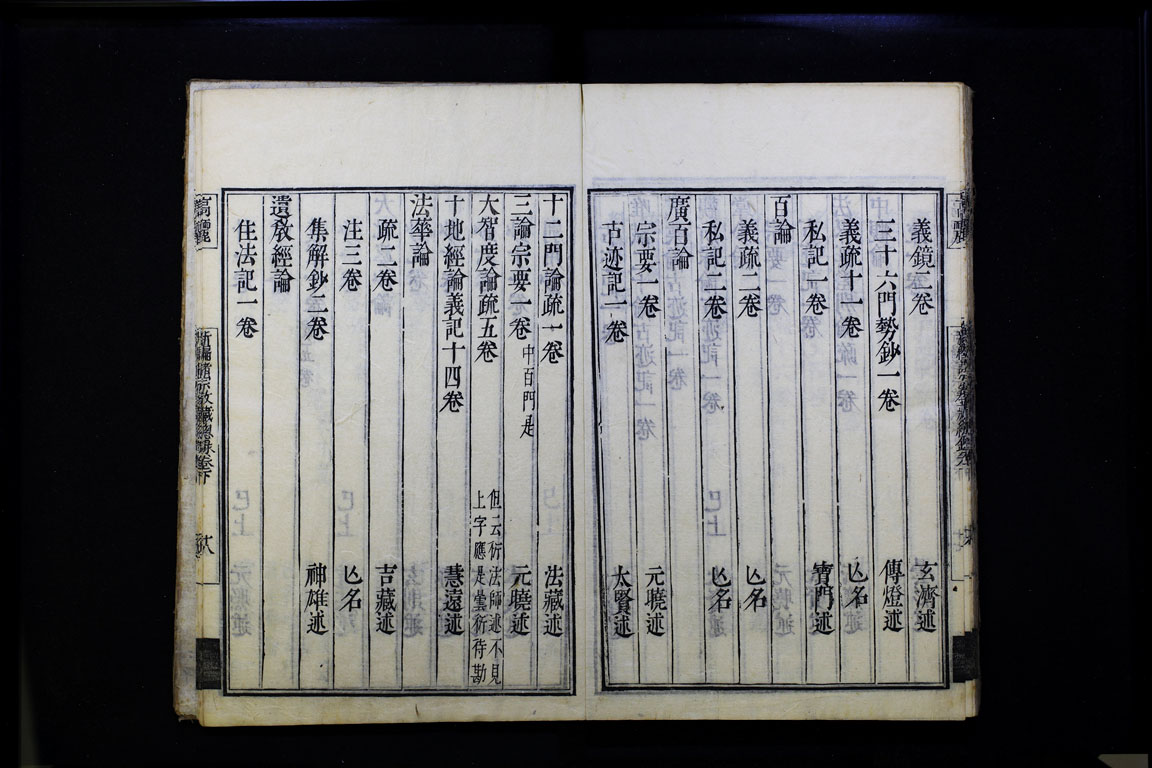 義鏡二卷 玄濟述
三十六門勢鈔一卷 傳燈述
義疏十一卷 亾名
私記一卷 寶門述
百論
義疏二卷 亾名
私記二卷 亾名
廣百論
宗要一卷 元曉述
古迹記一卷 太賢述
十二門論疏一卷 法藏述
三論宗要一卷 中百門是 元曉述
大智度論疏五卷 但云衍法師述不見
上字應是曇衍待勘
十地經論義記十四卷 慧遠述
法華論
疏二卷 吉藏述
注三卷 亾名
集解鈔二卷 神雄述
遺敎經論
住法記一卷
高麗
新編諸宗敎藏總錄卷下
十八